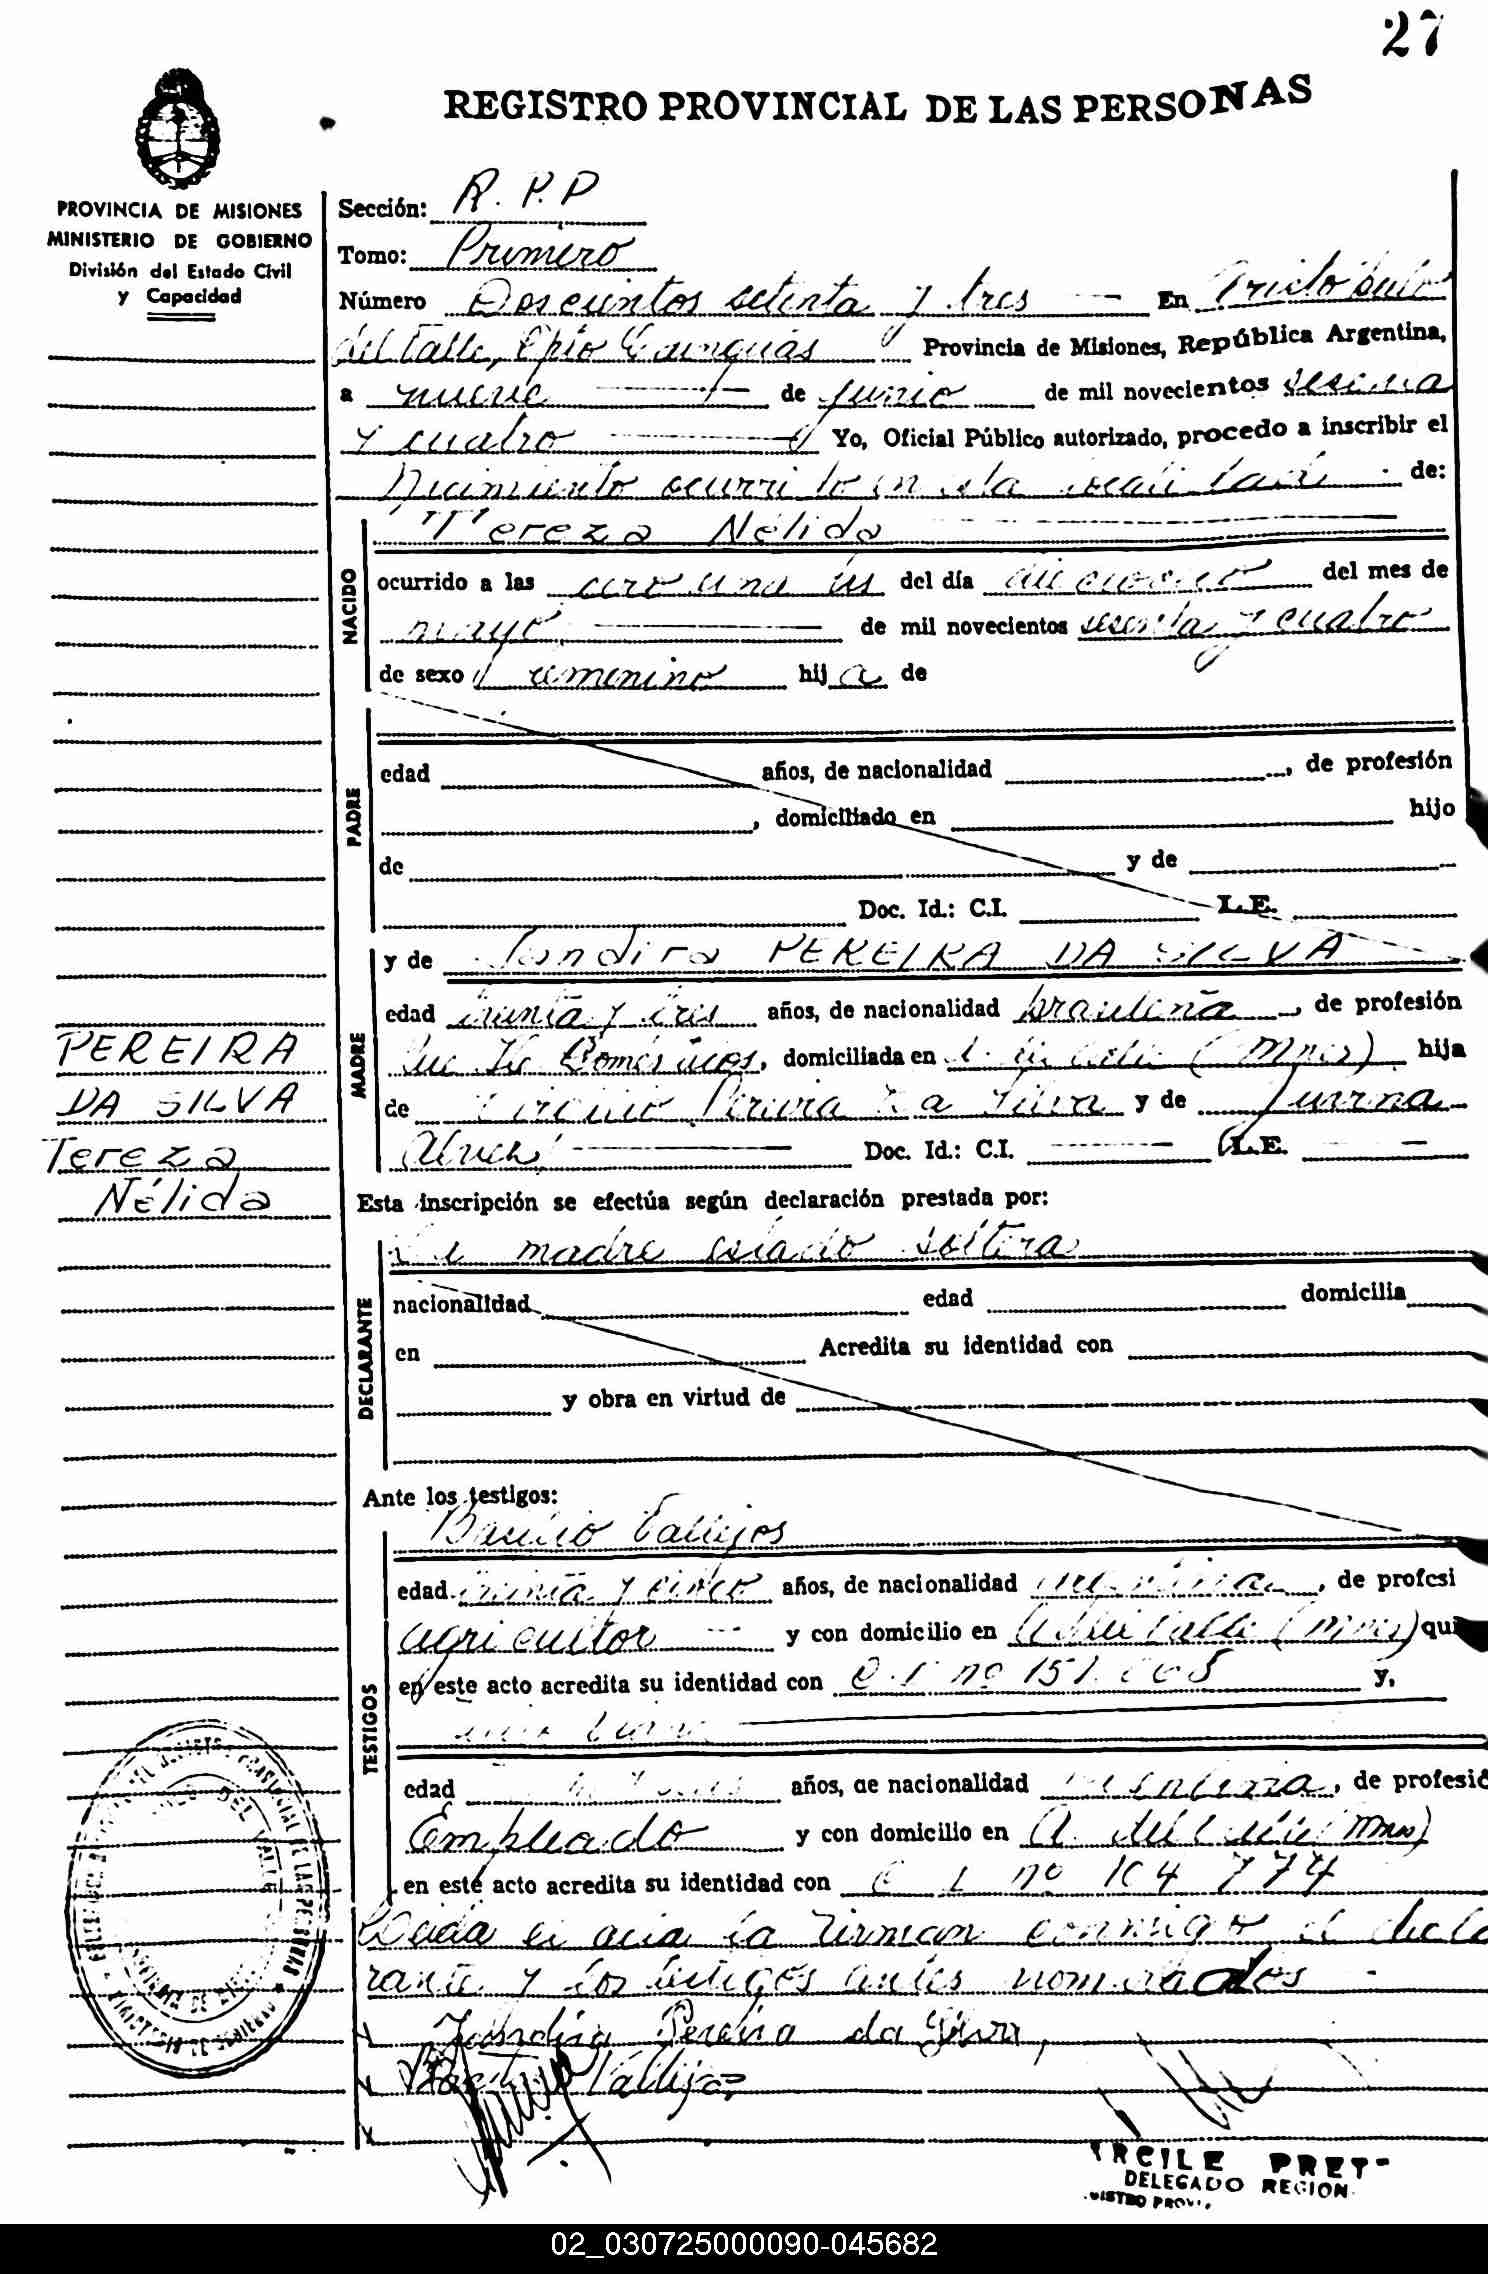 27
REGISTRO PROVINCIAL DE LAS PERSONAS
PROVINCIA DE MISIONES
MINISTERIO DE GOBIERNO
División del Estado Civil
y Capacidad
Sección: R. P. P
Tomo: Primero
Número Doscientos setenta y tres — En Aristóbulo
del Valle, Dpto Cainguás Provincia de Misiones, República Argentina,
a nueve de junio de mil novecientos sesenta
y cuatro Yo, Oficial Público autorizado, procedo a inscribir el
Nacimiento ocurrido en esta localidad de:
NACIDO
Tereza Nélida
ocurrido a las cero una hs del día dieciocho del mes de
mayo de mil novecientos sesenta y cuatro
de sexo femenino hija de
PADRE
edad años, de nacionalidad , de profesión
, domiciliado en hijo
de y de
Doc. Id.: C.I. L.E.
MADRE
y de Jandira PEREIRA DA SILVA
edad treinta y tres años, de nacionalidad brasileña, de profesión
Domésticos, domiciliada en (Mnes) hija
de Pereira Da Silva y de
Doc. Id.: C.I. — L.E. —
PEREIRA
DA SILVA
Tereza
Nélida
Esta inscripción se efectúa según declaración prestada por:
DECLARANTE
La madre estado soltera
nacionalidad edad domicilia
en Acredita su identidad con
y obra en virtud de
Ante los testigos:
TESTIGOS
Basilio Vallejos
edad treinta y cinco años, de nacionalidad argentina, de profesi
agricultor — y con domicilio en A. del Valle (Mnes) qui
en este acto acredita su identidad con C. I. nº 151. y,
edad años, de nacionalidad argentina, de profesió
Empleado y con domicilio en A. del Valle (Mnes)
en este acto acredita su identidad con C I. nº 104 774
Leída el acta la firman conmigo el decla
rante y los testigos antes nombrados
Jandira Pereira da Silva
Basilio Vallejos
DELEGADO REGION
02_030725000090-045682